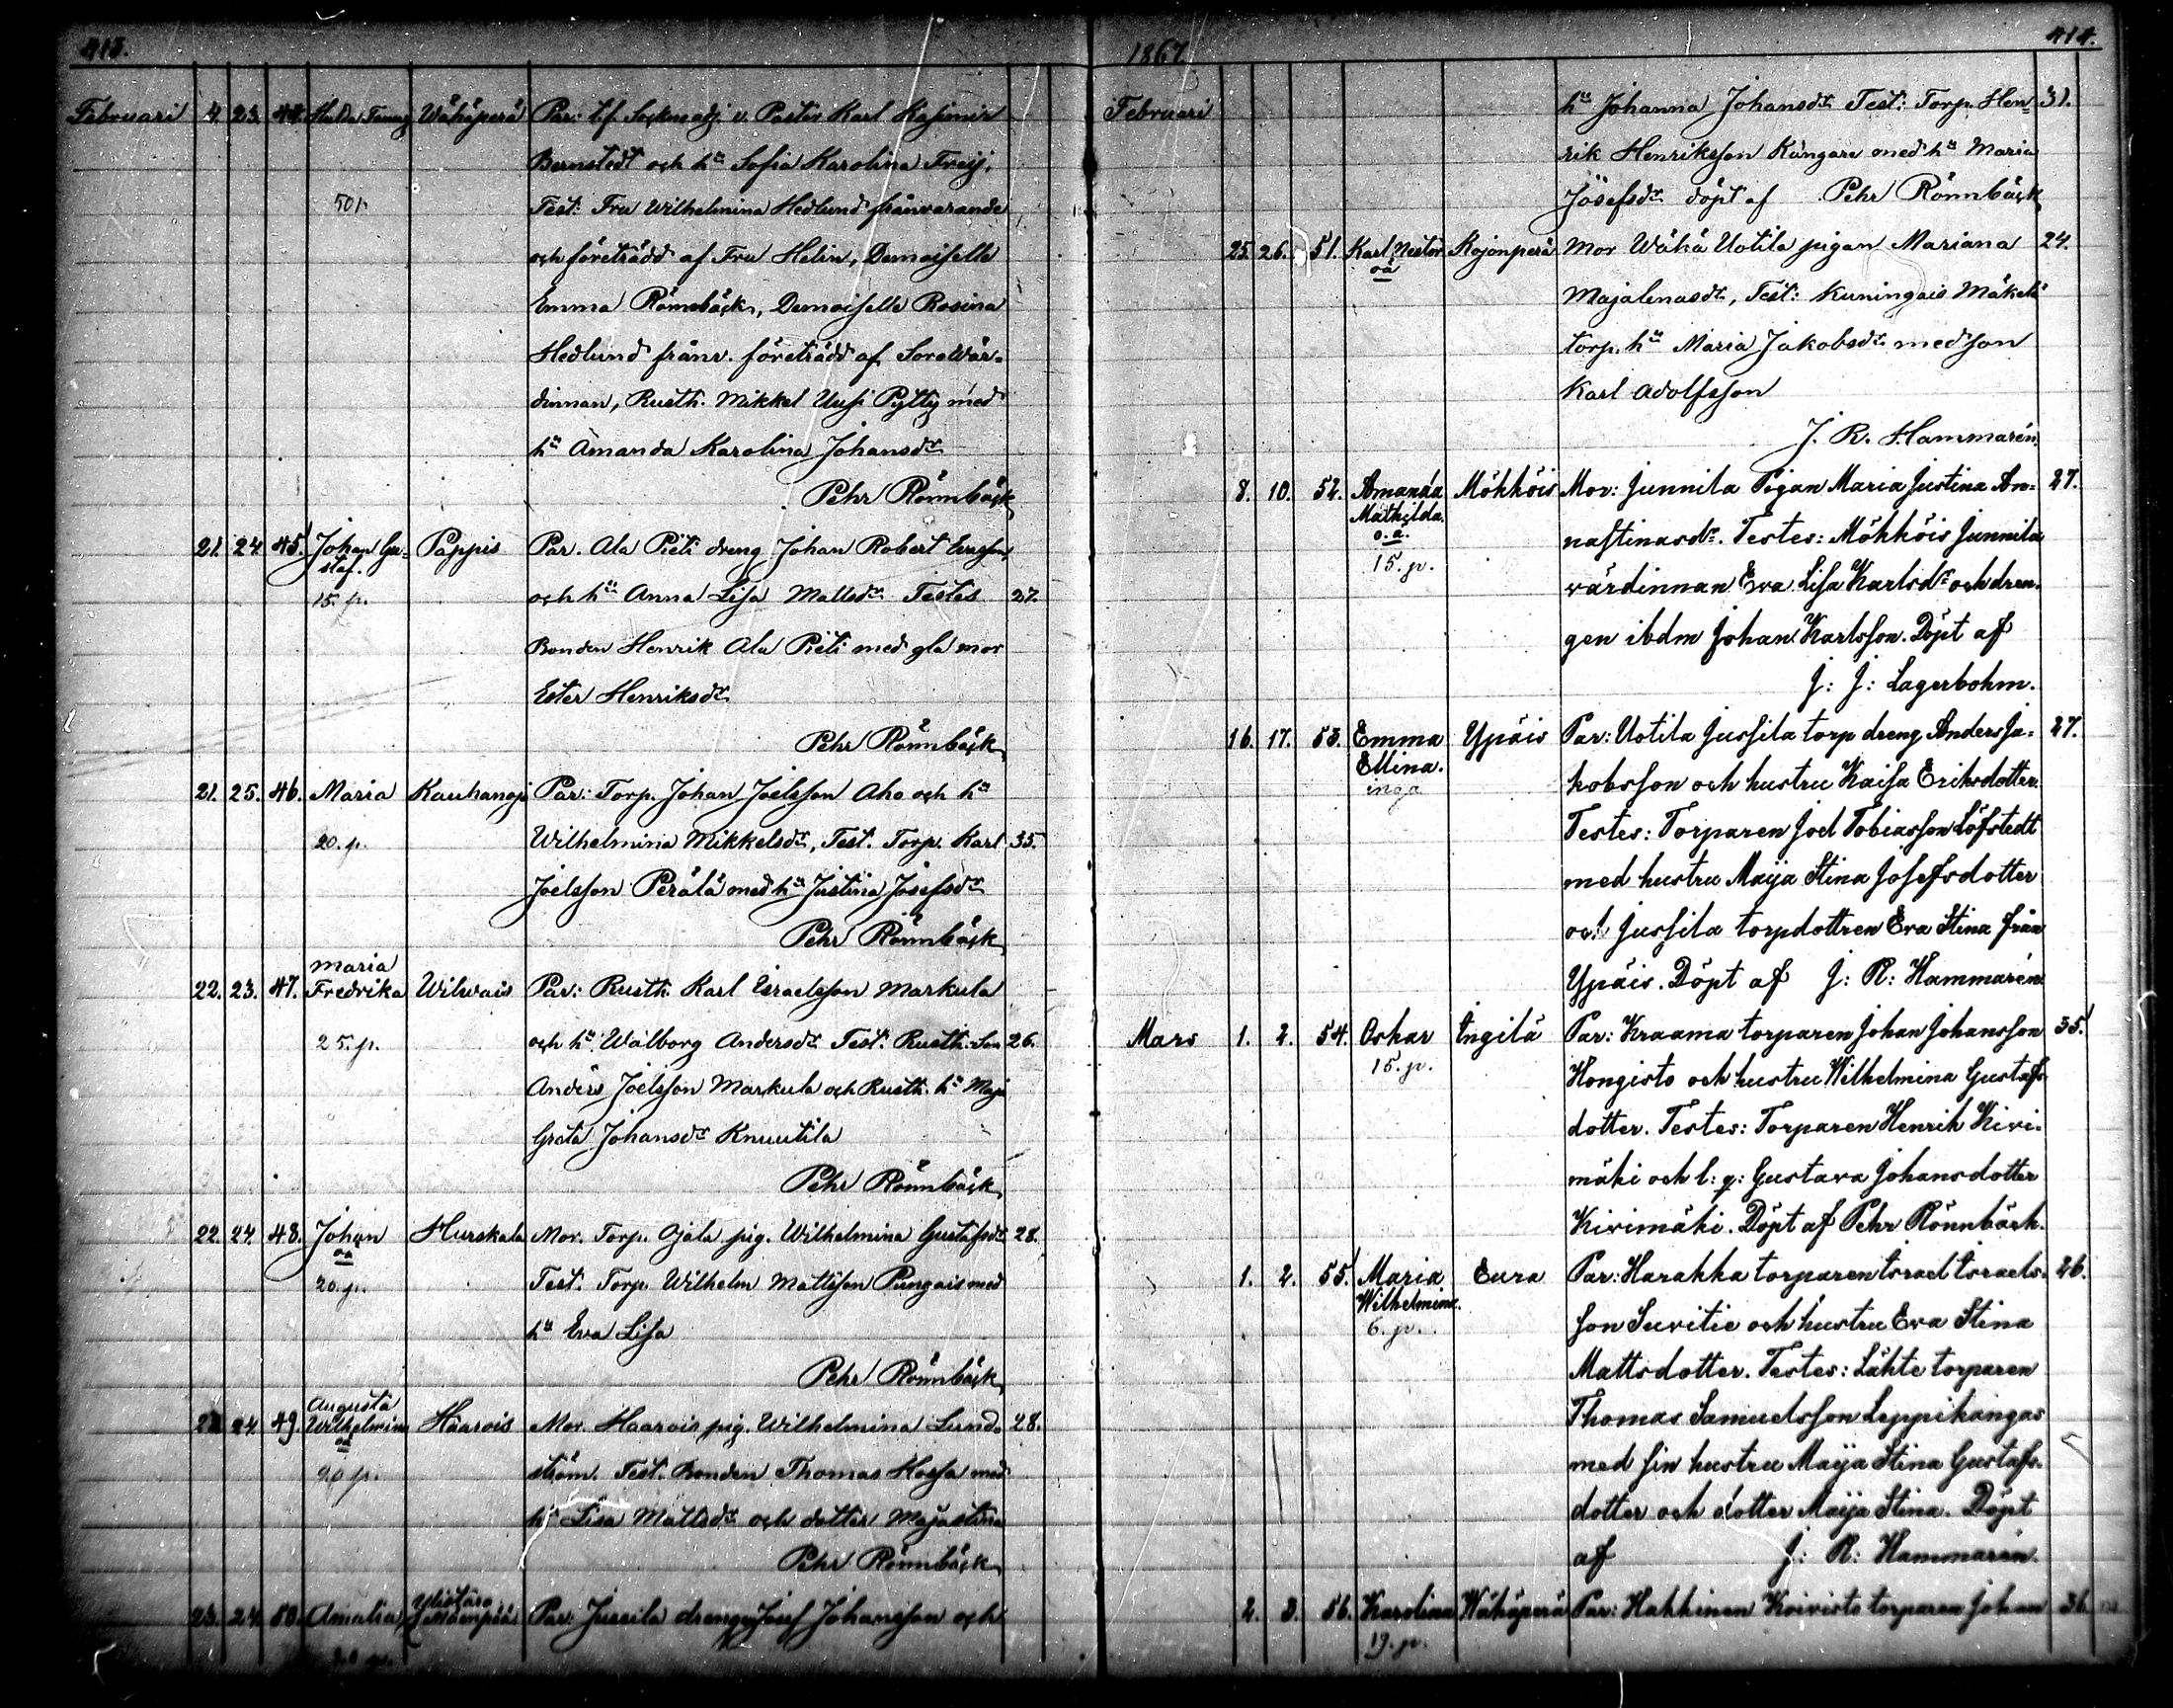 413.
Februari 4. 23. 44. Hulda Fanny Wähäperä Par: tf Sockneadj. v. Pastor Karl Kasimir
Bernstedt och hu Sofia Karolina Freij.
50 p. Test: Fru Wilhelmina Hedlund frånvarande
och företrädd af Fru Helin, Demoiselle
Emma Rönnbäck, Demoiselle Rosina
Hedlund frånv. företrädd af Sorawär-
dinnan, Rusth. Mikkel Uusi Pytty med
hu Amanda Karolina Johansdr
Pehr Rönnbäck
21. 24. 45. Johan Gu- Pappis Par. Ala Pieti dreng Johan Robert
staf.
15. p. och hu Anna Lisa Mattsdr Testes 27.
Bonden Henrik Ala Pieti med gla mor
Ester Henriksdr
Pehr Rönnbäck
21. 25. 46. Maria Kauhanoja Par: Torp. Johan Joelsson Aho och hu
20. p. Wilhelmina Mikkelsdr, Test. Torp. Karl 35.
Joelsson Perälä med hu Justina Josefsdr
Pehr Rönnbäck
Maria
22. 23. 47. Fredrika Wilvais Par: Rusth. Karl Israelsson Markula
25. p. och hu Walborg Andersdr Test. Rusth. Son 26.
Anders Joelsson Markula och Rusth. hu Maja
Greta Johansdr Knuutila
Pehr Rönnbäck
22. 24. 48. Johan Hurskala Mor. Torp. Ojala pig. Wilhelmina Gustafsdr 28.
oä
20. p. Test. Torp. Wilhelm Mattsson Pungais med
hu Eva Lisa
Pehr Rönnbäck
Augusta
24. 49. Wilhelmina Haarois Mor. Haarois pig. Wilhelmina Lund- 28.
oä
20 p. ström. Test. Bonden Thomas Hossa med
hu Lisa Mattsdr och dotter Majastina
Pehr Rönnbäck
23. 24. 50. Amalia Par: Jussila dreng Josef Johansson och
1867. 414.
Februari hu Johanna Johansdr Test: Torp. Hen- 31.
rik Henriksson Kangare med hu Maria
Josefsdr döpt af Pehr Rönnbäck
25. 26. 51. Karl Nestor Kojonperä Mor Wähä Uotila pigan Mariana 24.
oä
Majalenasdr, Test: Kuningais Mäkelä
torp. hu Maria Jakobsdr med son
Karl Adolfsson
J. R. Hammarén.
8. 10. 52. Amanda Möhköis Mor: Junnila Pigan Maria Justina An- 27.
Mathilda.
o.ä. nastinasdr. Testes: Möhköis Junnila
15. p.
värdinnan Eva Lisa Karlsdr och dren-
gen ibdm Johan Karlsson. Döpt af
J: J: Lagerbohm.
16. 17. 53. Emma Ypäis Par: Uotila Jussila torp dreng Anders Ja- 27.
Ellina.
inga kobsson och hustru Kaisa Eriksdotter.
Testes: Torparen Joel Tobiasson Löfstedt
med hustru Maija Stina Josefsdotter
och Jussila torpdottren Eva Stina från
Ypäis. Döpt af J: R: Hammarén
Mars 1. 2. 54. Oskar Ingilä Par: Kraama torparen Johan Johansson 35.
15. p. Hongisto och hustru Wilhelmina Gustafs-
dotter. Testes: Torparen Henrik Kivi-
mäki och l: q: Gustava Johansdotter
Kivimäki. Döpt af Pehr Rönnbäck.
1. 2. 55. Maria Eura Par: Harakka torparen Israel Israels- 26.
Wilhelmina.
6. p. son Suvitie och hustru Eva Stina
Mattsdotter. Testes: Lähte torparen
Thomas Samuelsson Leppikangas
med sin hustru Maija Stina Gustafs-
dotter och dotter Maija Stina. Döpt
af J: R: Hammarén.
2. 3. 56. Karolina Wähäperä Par: Hakkinen Koivisto torparen Johan 36.
19. p.